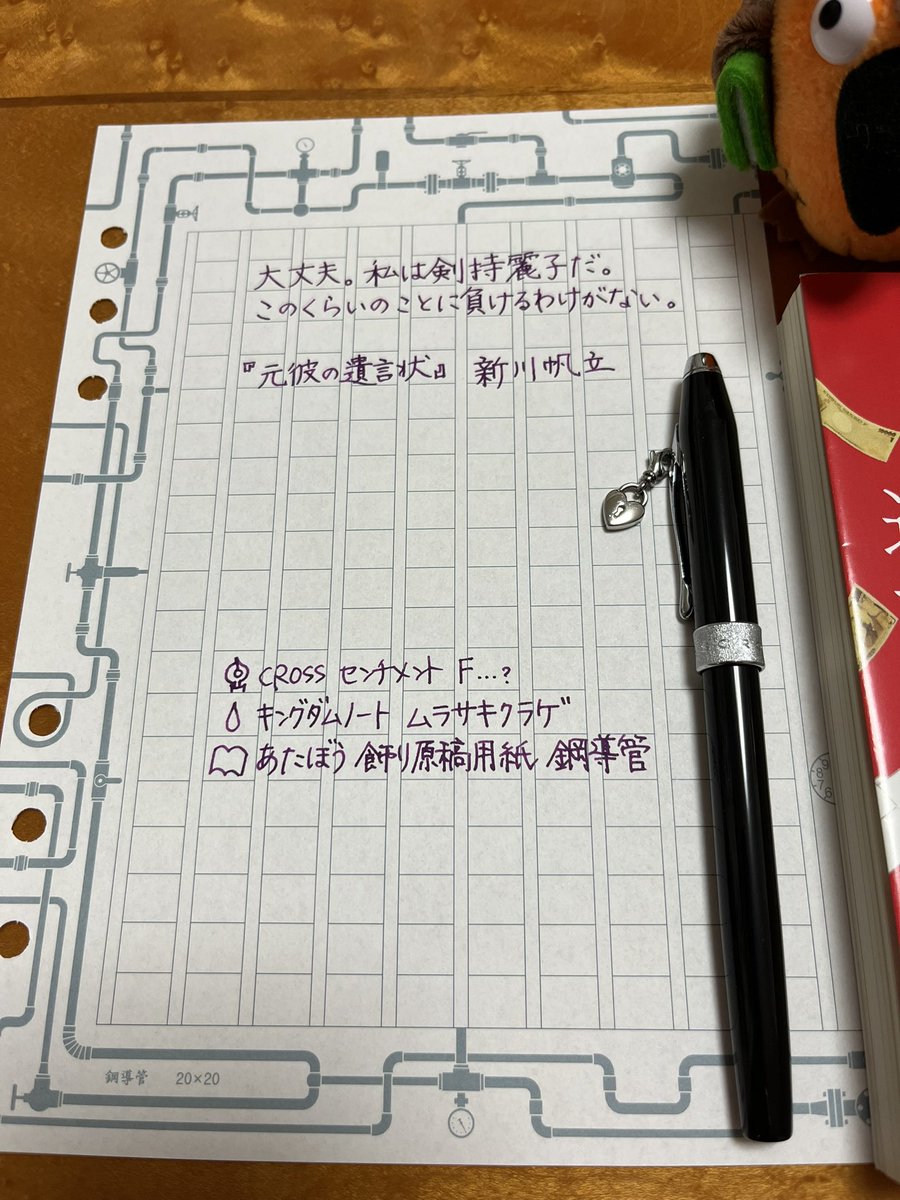 大丈夫。私は剣持麗子だ。
このくらいのことに負けるわけがない。
『元彼の遺言状』 新川帆立
CROSS センチメント F…?
キングダムノート ムラサキクラゲ
あたぼう 飾り原稿用紙 鋼導管
鋼導管 20×20